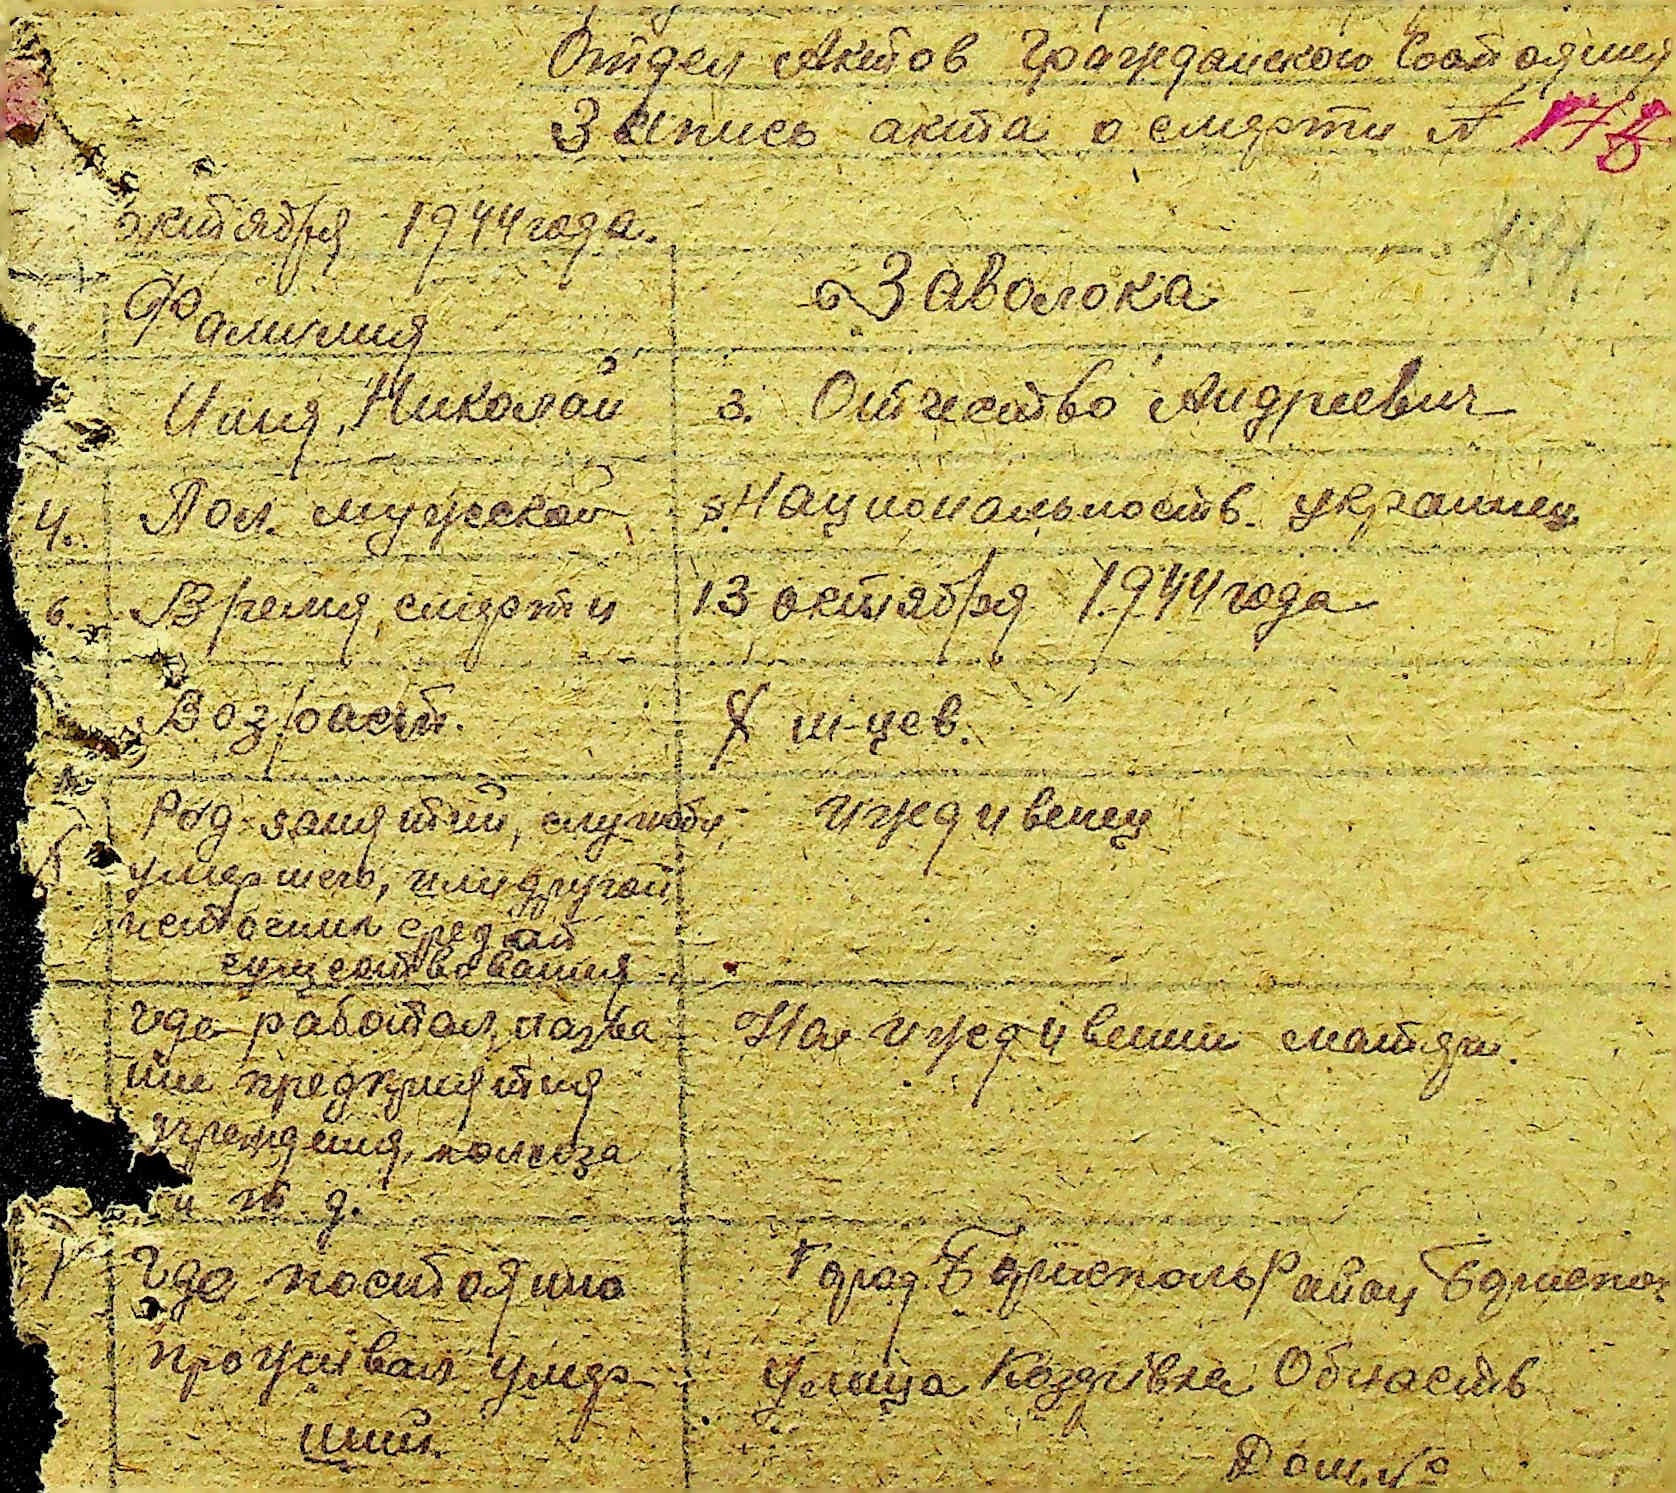 Отдел Актов Гражданского Состояния
Запись акта о смерти № 178
октября 1944 года.
Фамилия Заволока
Имя Николай 3. Отчество Андреевич
4. Пол мужской 5. Национальность украинец
6. Время смерти 13 октября 1944 года
Возраст. 8 м-цев.
Род занятий, службы, иждивенец
умершего, или другой
источник средств
существования
где работал, назва На иждивении матери.
ние предприятия
учреждения, колхоза
и т д.
Где постоянно Город Борисполь Район Бориспол
проживал умер- Улица Область
ший Дом №